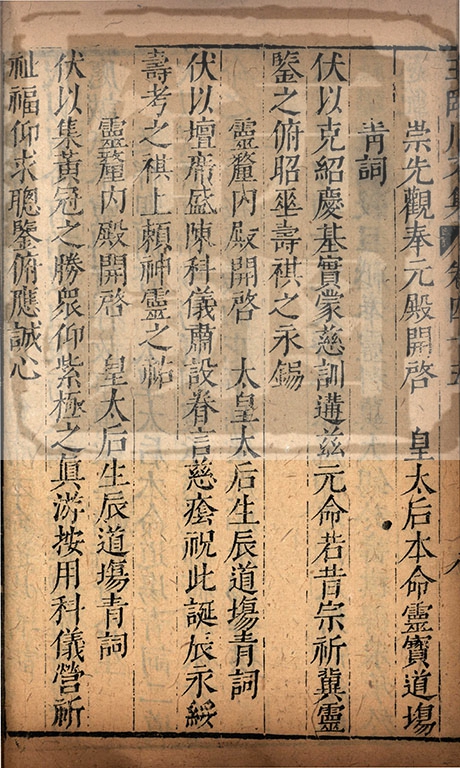 王臨川文集 卷四十五 八
崇先觀奉元殿開啓 皇太后本命靈寶道塲
青詞
伏以克紹慶基實蒙慈訓遘兹元命若昔宗祈冀靈
鑒之俯昭華壽祺之永錫
靈釐内殿開啓 太皇太后生辰道塲青詞
伏以壇齋盛陳科儀肅設眷言慈瘗祝此誕辰永綏
壽考之祺上賴神靈之祐
靈釐内殿開啓 皇太后生辰道塲青詞
伏以集黃冠之勝衆仰紫極之眞游按用科儀營祈
祉福仰求聰鑒俯應誠心